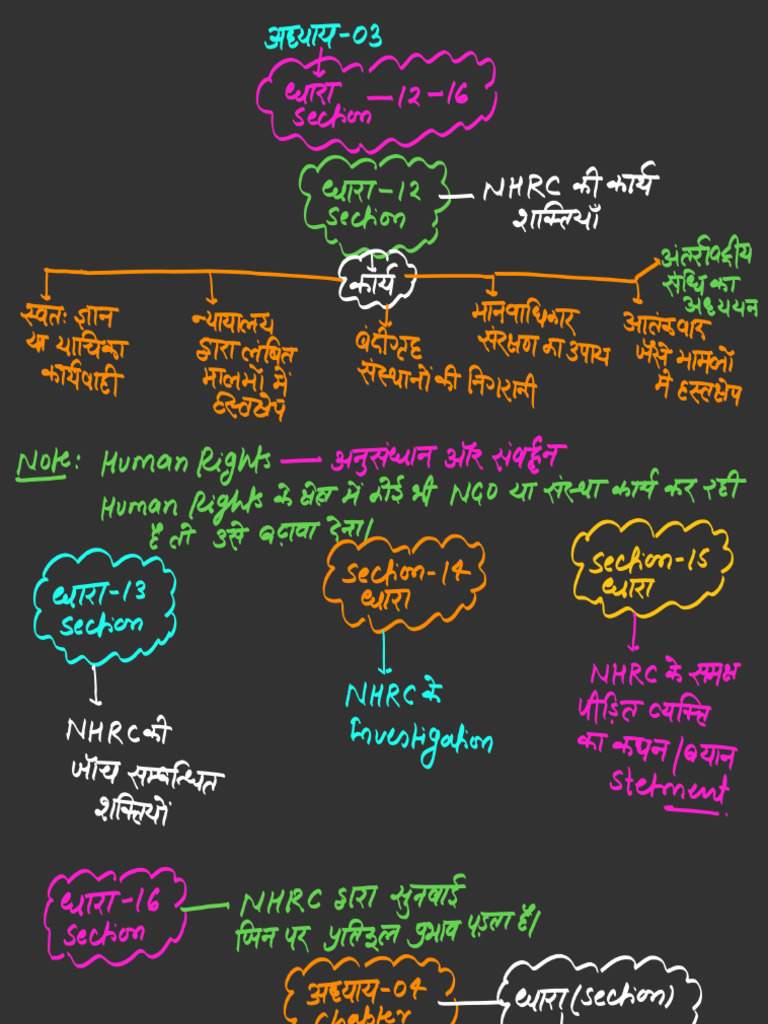 अध्याय-03
धारा -12-16
Section
धारा-12
Section
NHRC की कार्य
शक्तियाँ
कार्य
स्वतः ज्ञान
या याचिका
कार्यवाही
न्यायालय
द्वारा लंबित
मालमों में
हस्तक्षेप
बंदीगृह
संस्थानों की निगरानी
मानवाधिकार
संरक्षण का उपाय
आतंकवाद
जैसे मामलों
मे हस्तक्षेप
अंतर्राष्ट्रीय
संधि का
अध्ययन
Note: Human Rights — अनुसंधान और संवर्द्धन
Human Rights के क्षेत्र में कोई भी NGO या संस्था कार्य कर रही
है तो उसे बढ़ावा देना।
धारा-13
Section
NHRC की
जाँच सम्बन्धित
शक्तियों
Section-14
धारा
NHRC के
Investigation
Section-15
धारा
NHRC के समक्ष
पीड़ित व्यक्ति
का कथन/बयान
Stetment
धारा-16
Section
NHRC द्वारा सुनवाई
जिन पर प्रतिकूल प्रभाव पड़ता है।
अध्याय-04
Chapter
धारा (Section)